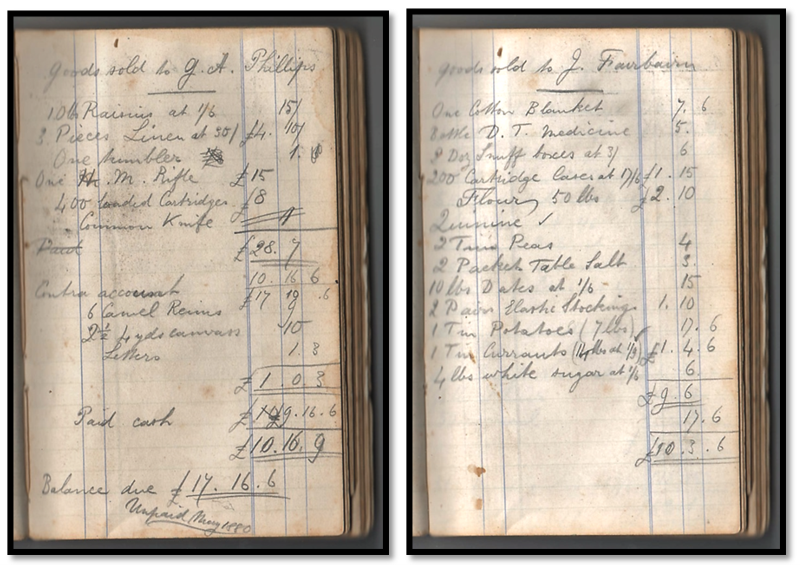 Goods sold to G. A. Phillips
10 lb Raisins at 1/6 15/
3 Pieces Linen at 30/ £4. 10/
One tumbler 1.
One H. M. Rifle £15
400 loaded Cartridges £8
Common Knife
Paid £28. 7
10. 16 6
Contra account £17 19 .6
6 Camel Reins 9
2½ 4 yds canvass 10
Letters 1. 3
£1. 0. 3
Paid cash £9. 16. 6
£10. 16. 9
Balance due £17. 16. 6
Unpaid May 1880
Goods sold to J. Fairbairn
One Cotton Blanket 7. 6
Bottle D. T. Medicine 5.
2 Doz Snuff boxes at 3/ 6
200 Cartridge Cases at 17/6 £1. 15
Flour 50 lbs £2. 10
Quinine ✓
2 Tins Peas 4
2 Packet Table Salt 3.
10 lbs Dates at 1/6 15
2 Pairs Elastic Stockings 1. 10
1 Tin Potatoes (7 lbs) 17. 6
1 Tin Currants (14 lbs at 1/9) £1. 4. 6
4 lbs white sugar at 1/6 6
£9. 6
17. 6
£10. 3. 6